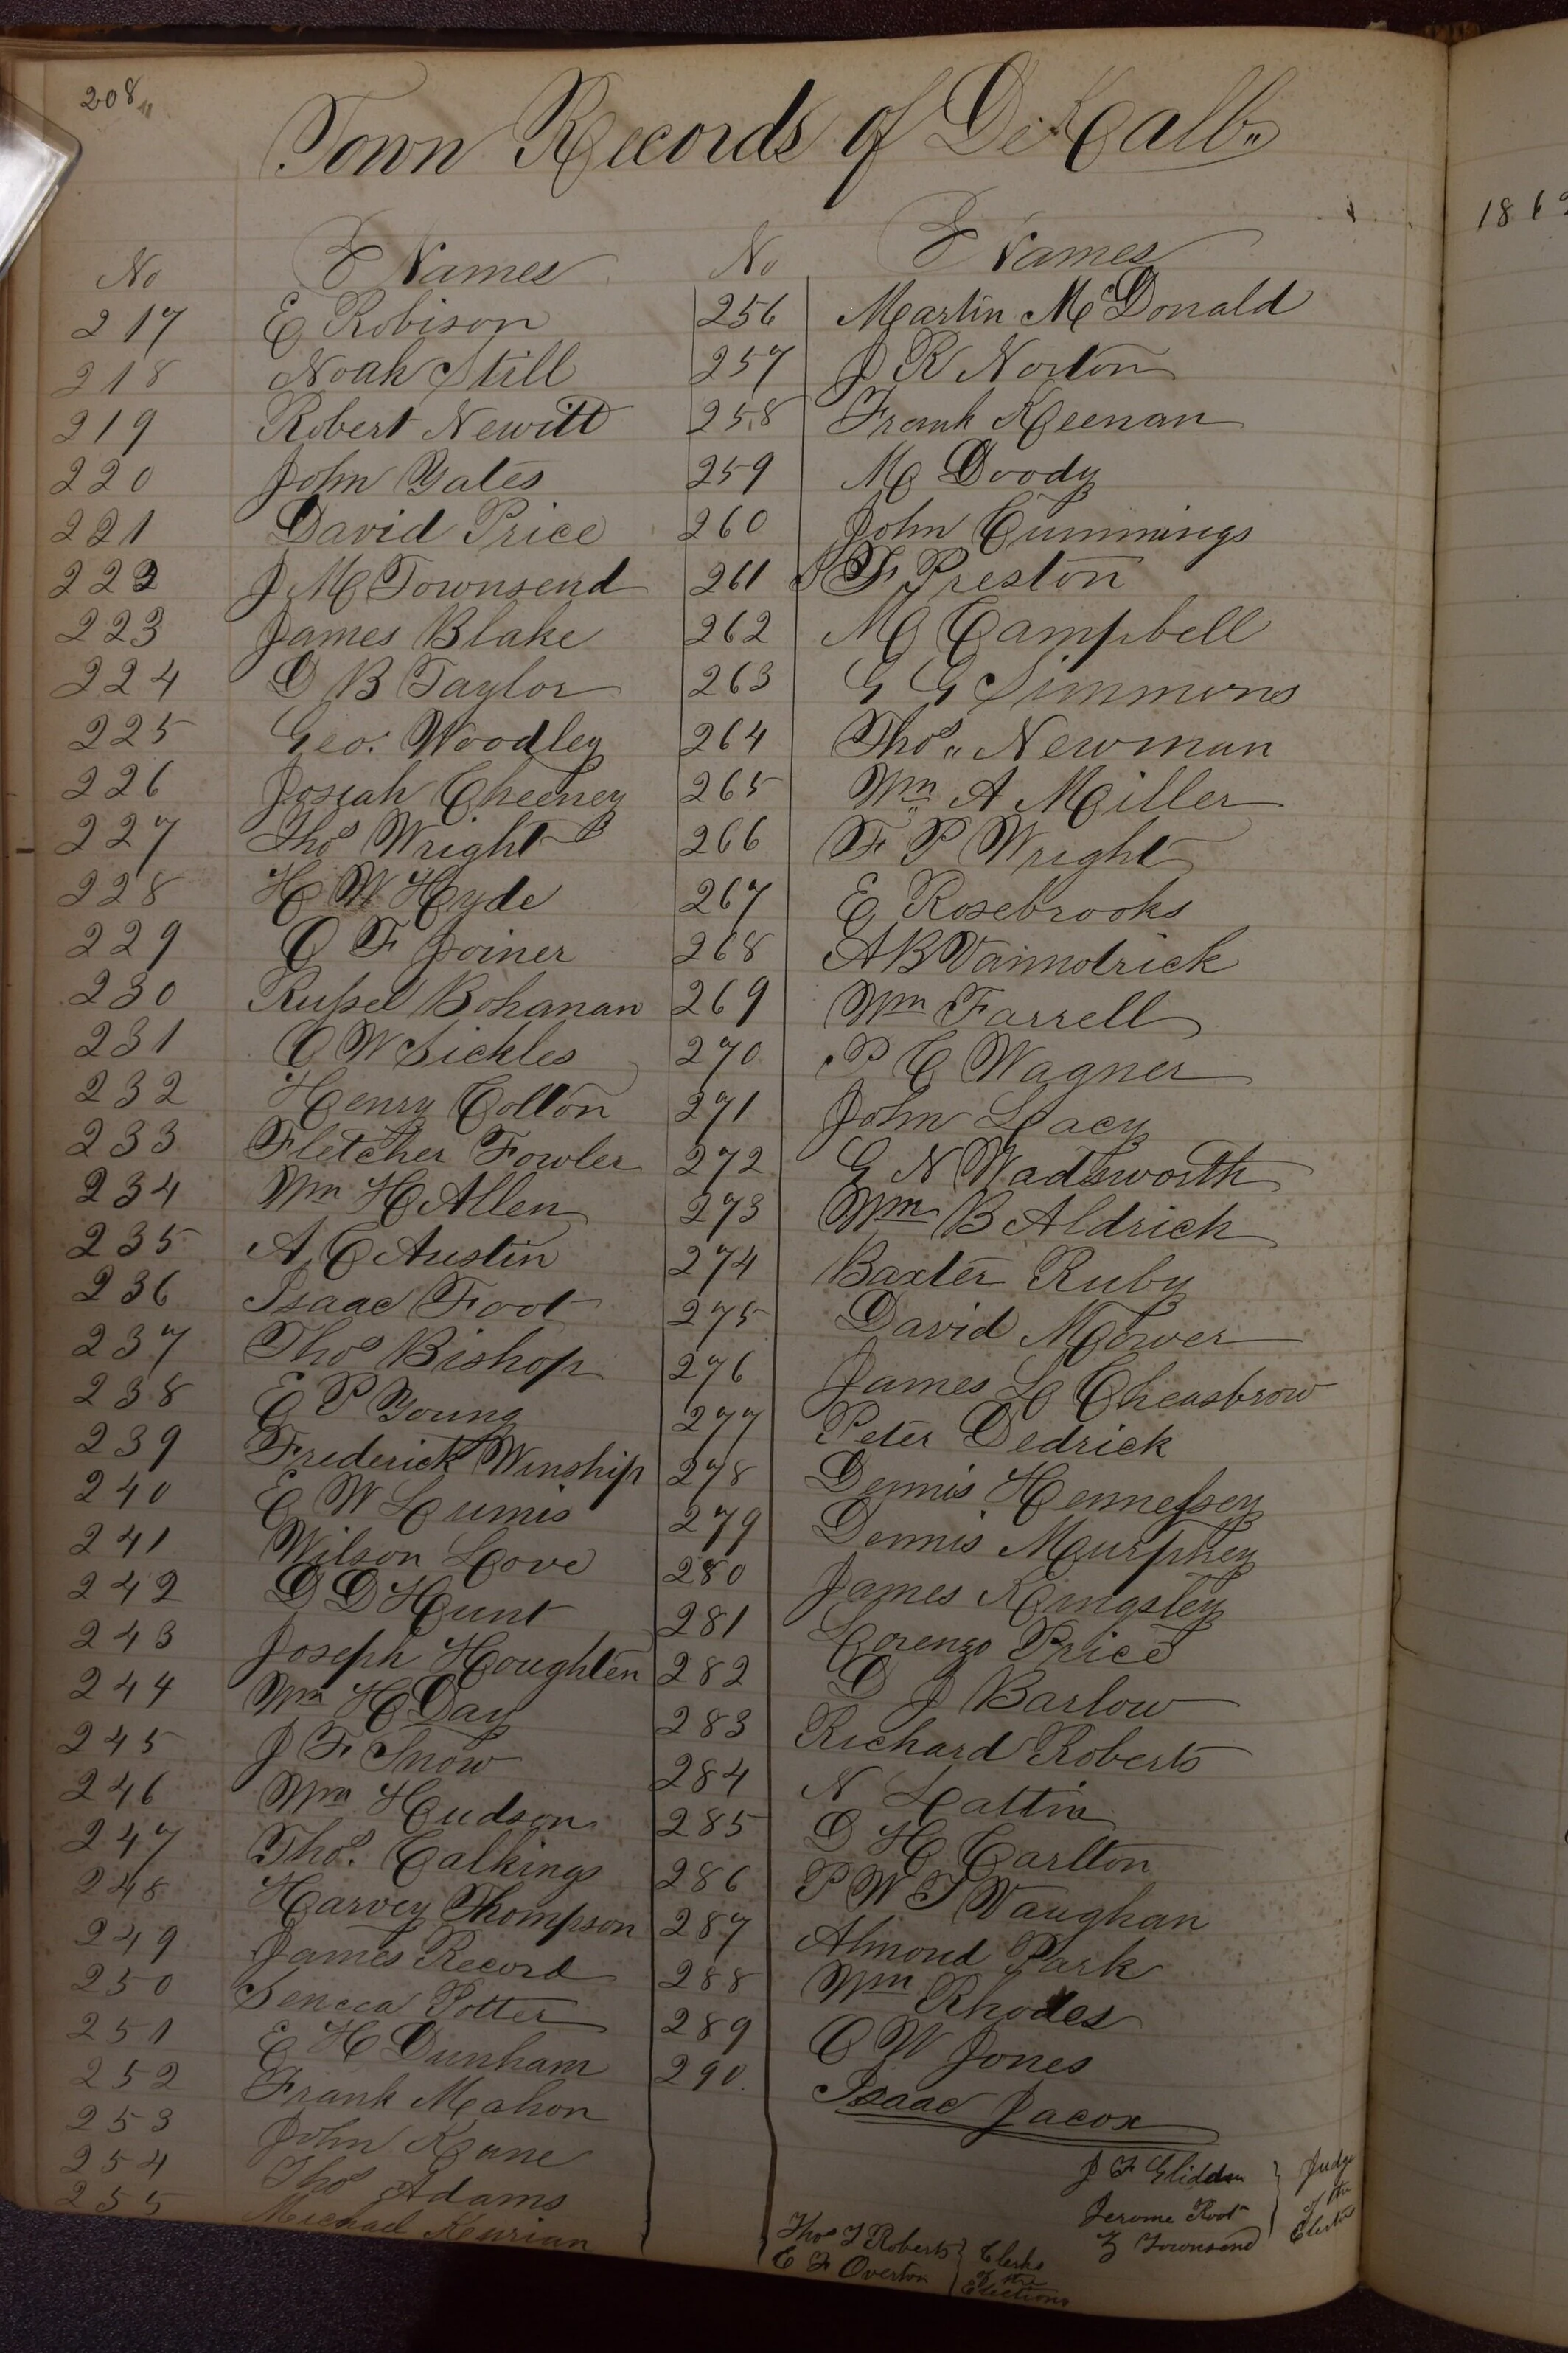 208
Town Records of DeKalb
1862
No Names No Names
217 E Robison 256 Martin McDonald
218 Noah Still 257 J R Norton
219 Robert Newitt 258 Frank Keenan
220 John Yates 259 M Doody
221 David Price 260 John Cummings
222 J M Townsend 261 F Preston
223 James Blake 262 M Campbell
224 D B Taylor 263 G G Simmons
225 Geo. Woodley 264 Thos Newman
226 Josiah Cheeney 265 Wm A Miller
227 Thos Wright B 266 F P Wright
228 H W Hyde 267 E Rosebrooks
229 O F Joiner 268 A B
230 Russel Bohanan 269 Wm Farrell
231 C W Sickles 270 P C Wagner
232 Henry Colton 271 John Lacy
233 Fletcher Fowler 272 G N Wadsworth
234 Wm H Allen 273 Wm B Aldrich
235 A C Austin 274 Baxter Ruby
236 Isaac Foot 275 David Mower
237 Thos Bishop 276 James L Cheasbrow
238 E P Young 277 Peter Dedrick
239 Frederick Winship 278 Dennis Hennessey
240 E W Lumis 279 Dennis Murphey
241 Wilson Love 280 James Kingsley
242 D D Hunt 281 Lorenzo Price
243 Joseph Houghten 282 D J Barlow
244 Wm H Day 283 Richard Roberts
245 J F Snow 284 N Lattin
246 Wm Hudson 285 D H Carlton
247 Thos. Calkings 286 P W T Vaughan
248 Harvey Thompson 287 Almond Park
249 James Record 288 Wm Rhodes
250 Seneca Potter 289 C W Jones
251 E H Dunham 290. Isaac Jacox
252 Frank Mahon
253 John Kane
254 Thos Adams
255 Michael Kurian
J F Glidden
Jerome Root
Z Townsend
Judge
of the
Thos T Roberts
E F Overton
Clerks
of the
Elections